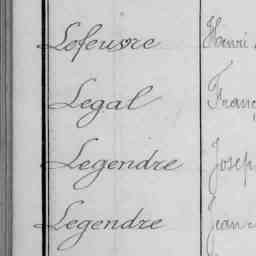 Lefeuvre Henri
Legal Franç
Legendre Josep
Legendre Jean